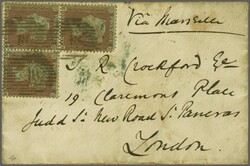 Via Marseilles
J. R. Crockford Esq
19. Claremont Place
Judd St. New Road St. Pancras
London.